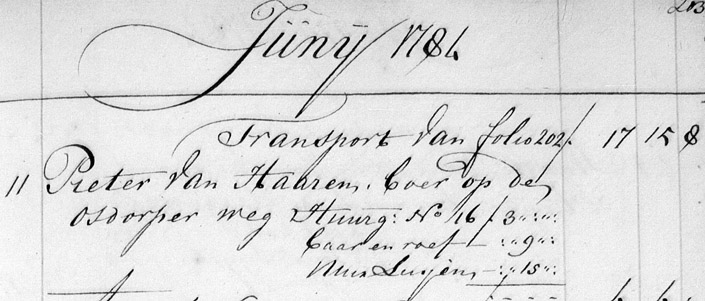 203
Juny 1784
Transport van folio 202 / . 17 15 8
11 Pieter Van Haaren. Boer op de
osdorper weg Huurg: No 16 / 3 „ : „ :
Baar en roef — : „ 9 „ :
Luijen — : „ 15 „ :